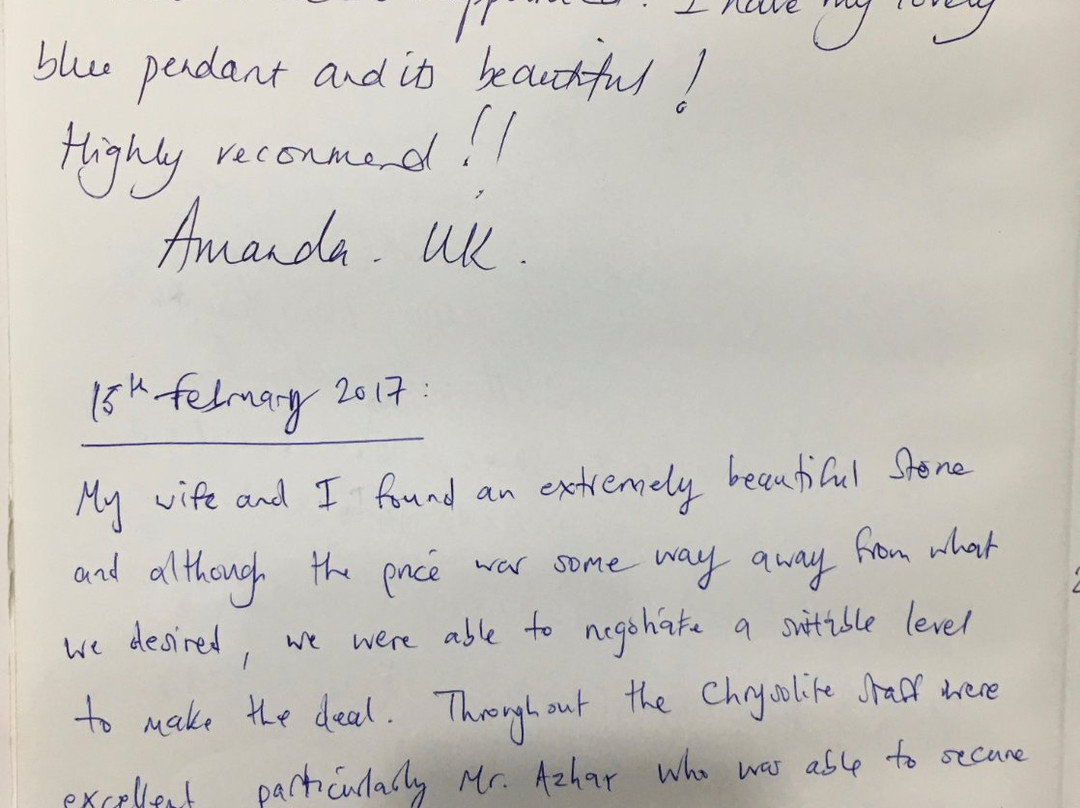 I have my lovely
blue pendant and its beautiful!
Highly recommend!!
Amanda. UK.
15th February 2017:
My wife and I found an extremely beautiful Stone
and although the price was some way away from what
we desired, we were able to negotiate a suitable level
to make the deal. Throughout the Chrysolite staff were
excellent particularly Mr. Azhar who was able to secure